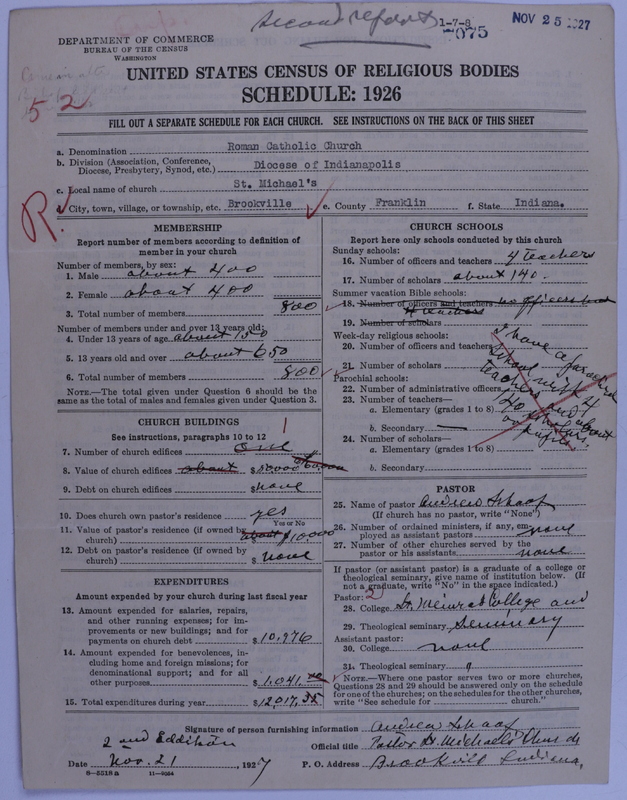 Second report
1-7-8
-075
NOV 25 1927
DEPARTMENT OF COMMERCE
BUREAU OF THE CENSUS
WASHINGTON
52
R.
UNITED STATES CENSUS OF RELIGIOUS BODIES
SCHEDULE: 1926
FILL OUT A SEPARATE SCHEDULE FOR EACH CHURCH. SEE INSTRUCTIONS ON THE BACK OF THIS SHEET
a. Denomination Roman Catholic Church
b. Division (Association, Conference, Diocese, Presbytery, Synod, etc.) Diocese of Indianapolis
c. Local name of church St. Michael's
d. City, town, village, or township, etc. Brookville e. County Franklin f. State Indiana.
MEMBERSHIP
Report number of members according to definition of
member in your church
Number of members by sex:
1. Male about 400
2. Female about 400
3. Total number of members 800
Number of members under and over 13 years old:
4. Under 13 years of age about 150
5. 13 years old and over about 650
6. Total number of members 800
NOTE.—The total given under Question 6 should be
same as the total of males and females given under Question 3.
CHURCH BUILDINGS
See instructions, paragraphs 10 to 12
1
7. Number of church edifices one
8. Value of church edifices about $
9. Debt on church edifices $ none
10. Does church own pastor's residence yes
Yes or No
11. Value of pastor's residence (if owned by
church) about $10,000
12. Debt on pastor's residence (if owned by
church) $ none
EXPENDITURES
Amount expended by your church during last fiscal year
13. Amount expended for salaries, repairs,
and other running expenses; for im-
provements or new buildings; and for
payments on church debt $10,976
14. Amount expended for benevolences, in-
cluding home and foreign missions; for
denominational support; and for all
other purposes $1,041.
15. Total expenditures during year $12,017.35
CHURCH SCHOOLS
Report here only schools conducted by this church
Sunday schools:
16. Number of officers and teachers 4 teachers
17. Number of scholars about 140.
Summer vacation Bible schools:
18. Number of officers and teachers no officers but
4 teachers
19. Number of scholars
Week-day religious schools:
20. Number of officers and teachers
21. Number of scholars
Parochial schools:
22. Number of administrative officers
23. Number of teachers—
a. Elementary (grades 1 to 8)
b. Secondary
24. Number of scholars—
a. Elementary (grades 1 to 8)
b. Secondary
I have a parochial
school with 4
teachers and about
140 scholars
or pupils.
PASTOR
25. Name of pastor Andrew Schaaf
(If church has no pastor, write "None")
26. Number of ordained ministers, if any, em-
ployed as assistant pastors none
27. Number of other churches served by the
pastor or his assistants none
If pastor (or assistant pastor) is a graduate of a college or
theological seminary, give name of institution below. (If
not a graduate, write "No" in the space indicated.)
Pastor: 2
28. College St. Meinrad College and
29. Theological seminary Seminary
Assistant pastor:
30. College none
31. Theological seminary "
NOTE.—Where one pastor serves two or more churches,
Questions 28 and 29 should be answered only on the schedule
for one of the churches; on the schedules for the other churches,
write "See schedule for church."
Signature of person furnishing information Andrew Schaaf
2nd Eddition Official title Pastor St. Michaels Church
Date Nov. 21, 1927 P. O. Address Brookville Indiana,
8-5518 a 11-9064